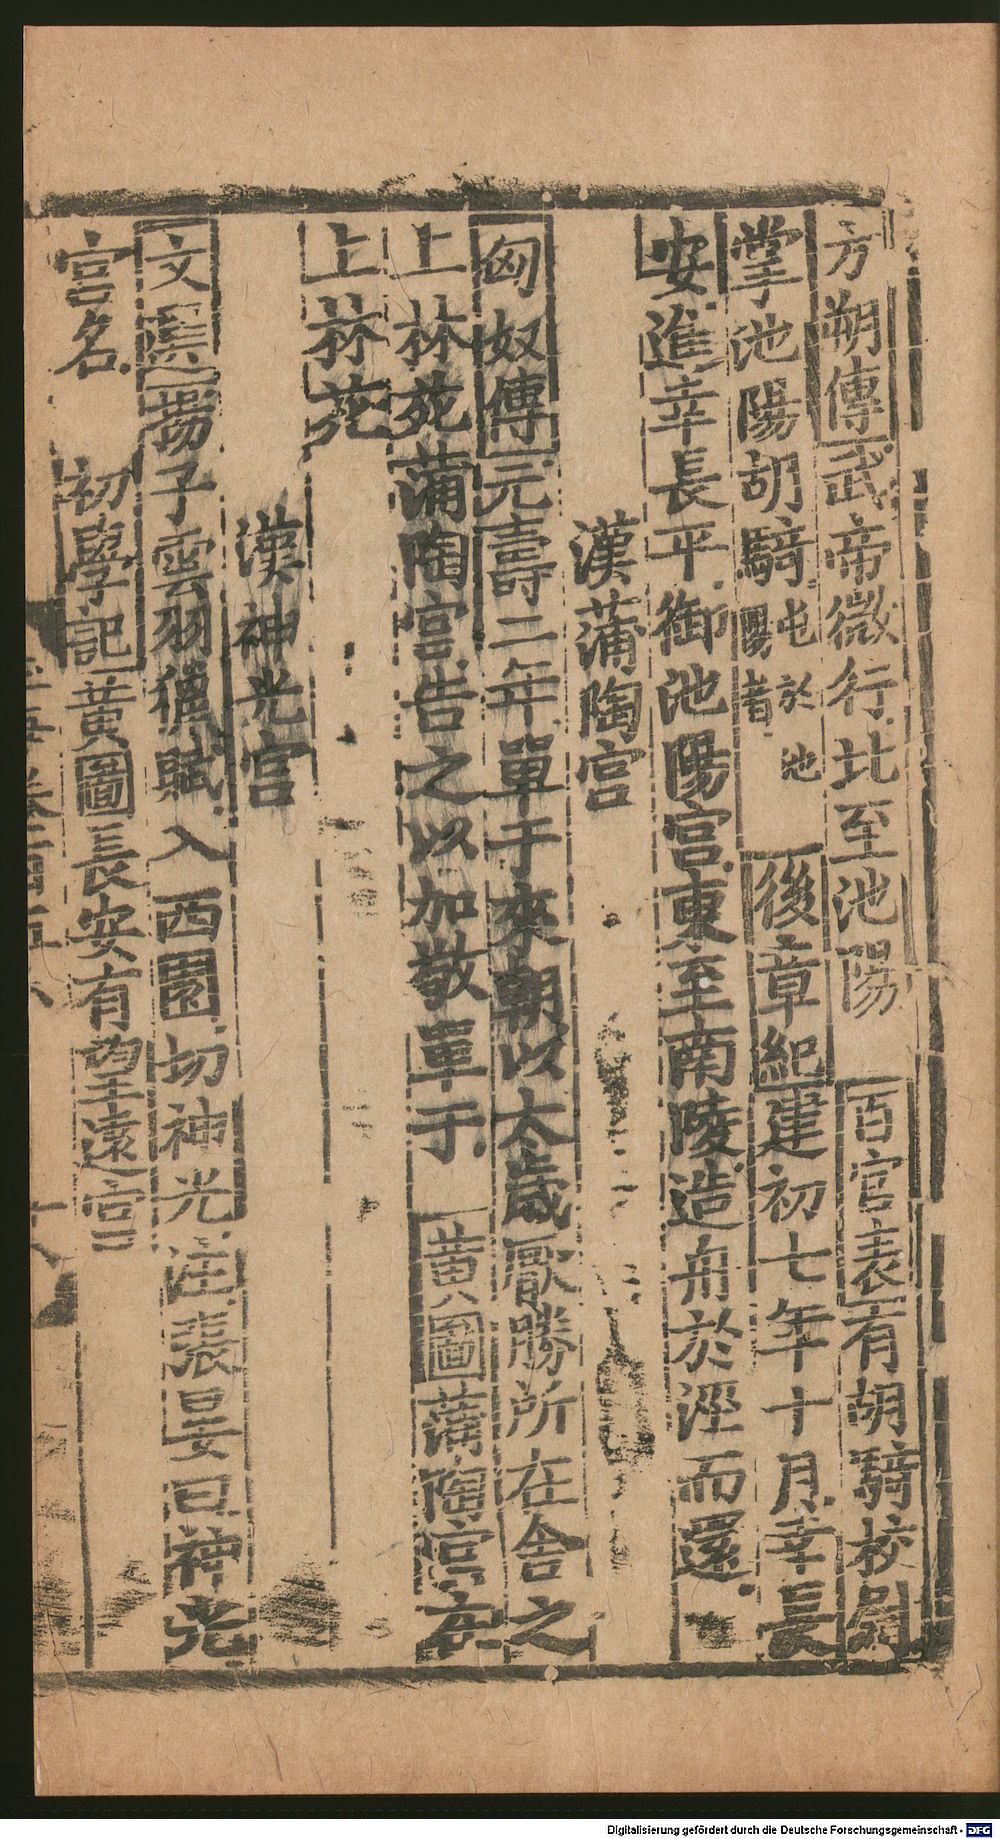 方朔傳武帝微行北至池陽　百官表有胡騎校尉
掌池陽胡騎屯於池陽者　後章紀建初七年十月幸長
安進幸長平御池陽宮東至南陵造舟於涇而還
漢蒲陶宮
匈奴傳元壽二年單于來朝以太歲厭勝所在舍之
上林苑蒲陶宮告之以加敬單于　黃圖蒲陶宮在
上林苑
漢神光宮
文選揚子雲羽獵賦入西園切神光注張晏曰神光
宮名　初學記黃圖長安有望遠宮
Digitalisierung gefördert durch die Deutsche Forschungsgemeinschaft - DFG